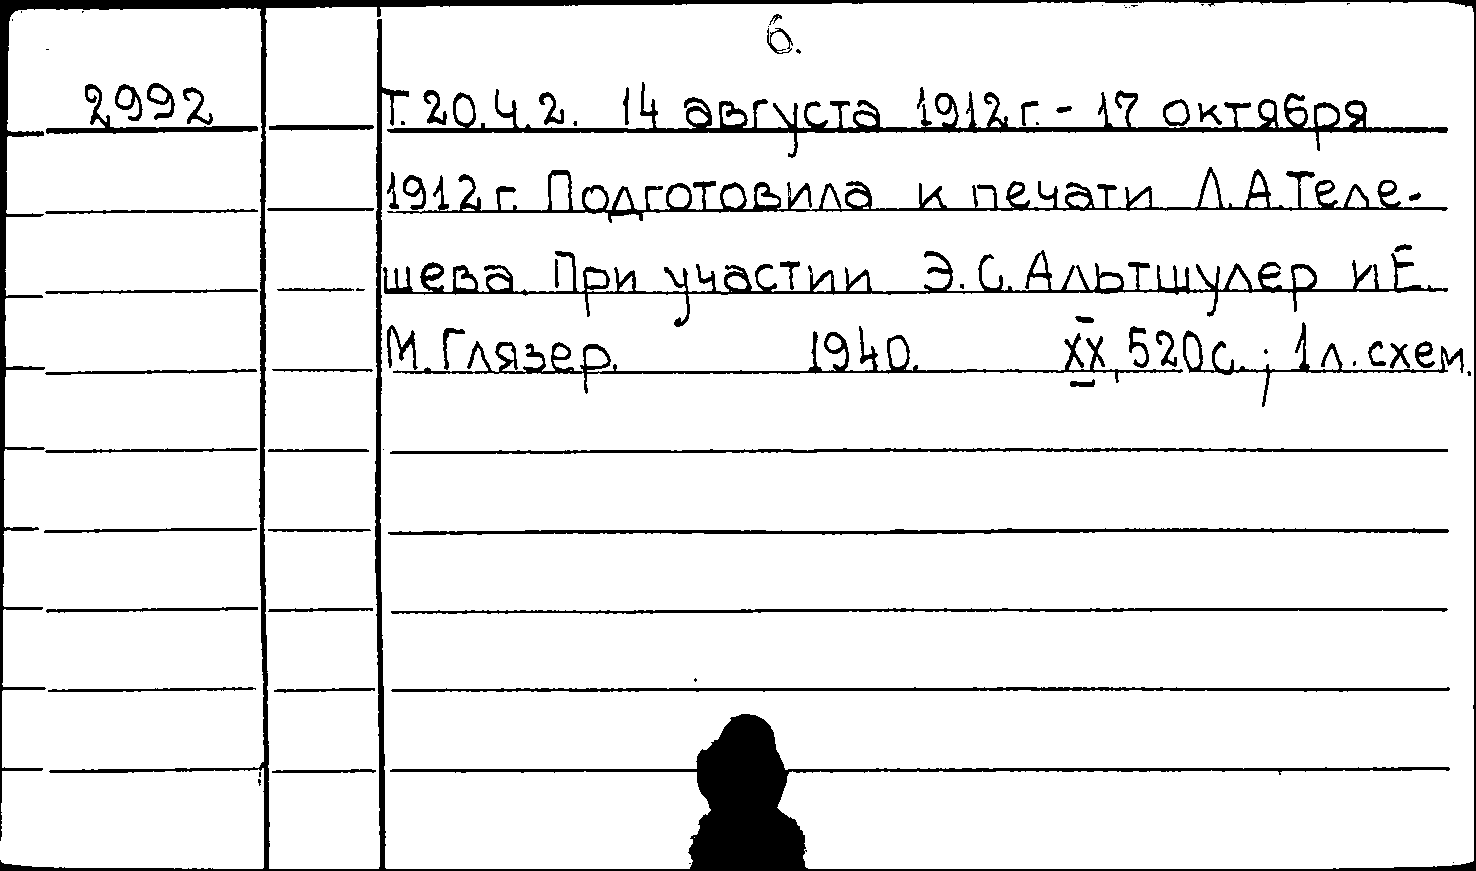 6.
2992 Т. 20.4.2. 14 августа 1912 г. - 17 октября
1912 г. Подготовила к печати Л. А. Теле-
шева. При участии Э. С. Альтшулер и Е.
М. Глязер. 1940. XX, 520 с.; 1 л. схем.